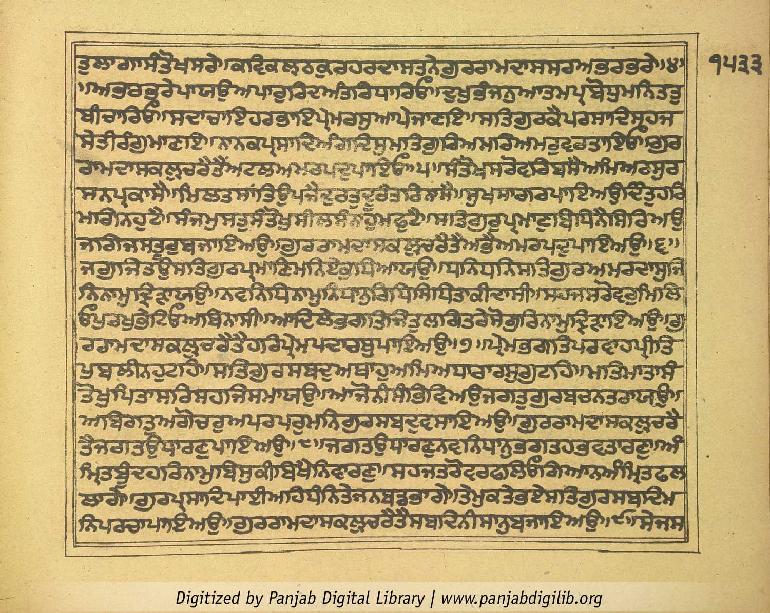 ਤੁਲਾਗਾਸੰਤੋਖਸਰੇ॥ਕਵਿਕਲਠਕੁਰਹਰਦਾਸਤਨੇਗੁਰਰਾਮਦਾਸਸਰਅਭਰਭਰੇ॥੪॥ ੧੫੩੩
॥ਅਭਰਭਰੇਪਾਯਉਅਪਾਰੁਰਿਦਅੰਤਰਿਧਾਰਿਓ॥ਦੁਖਭੰਜਨੁਆਤਮਪ੍ਰਬੋਧੁਮਨਿਤਤੁ
ਬੀਚਾਰਿਓ॥ਸਦਾਚਾਇਹਰਭਾਇਪ੍ਰੇਮਰਸੁਆਪੇਜਾਣਇ॥ਸਤਿਗੁਰਕੈਪਰਸਾਦਿਸਹਜ
ਸੇਤੀਰੰਗੁਮਾਣਇ॥ਨਾਨਕਪ੍ਰਸਾਦਿਅੰਗਦਿਸੁਮਤਿਗੁਰਿਅਮਰਿਅਮਰੁਵਰਤਾਇਓ॥ਗੁਰ
ਰਾਮਦਾਸਕਲੵੁਚਰੈਤੈਂਅਟਲਅਮਰਪਦੁਪਾਇਓ॥੫॥ਸੰਤੋਖਸਰੋਵਰਿਬਸੈਅਮਿਅਰਸੁਰ
ਸਨਪ੍ਰਕਾਸੈ॥ਮਿਲਤਸਾਂਤਿਉਪਜੈਦੁਰਤੁਦੂਰੰਤਰਿਨਸੈ॥ਸੁਖਸਾਗਰਪਾਇਅਉਦਿੰਤੁਹਰਿ
ਮਗਿਨਹੁਟੈ॥ਸੰਜਮੁਸਤੁਸੰਤੋਖੁਸੀਲਸੰਨਾਹੁਮਫੁਟੈ॥ਸਤਿਗੁਰੁਪ੍ਰਮਾਣੁਬਿਧਿਨੈਸਿਰਿਅਉ
ਜਗਿਜਸਤੂਰੁਬਜਾਇਅਉ॥ਗੁਰਰਾਮਦਾਸਕਲੵੁਚਰੈਤੈਅਭੈਅਮਰਪਦੁਪਾਇਅਉ॥੬॥
ਜਗੁਜਿਤਉਸਤਿਗੁਰਪ੍ਰਮਾਣਿਮਨਿਏਕੁਧਿਆਯਉ॥ਧਨਿਧਨਿਸਤਿਗੁਰਅਮਰਦਾਸੁਜਿ
ਨਿਨਾਮੁਦ੍ਰਿੜਾਯਉ॥ਨਵਨਿਧਿਨਾਮੁਨਿਧਾਨੁਰਿਧਿਸਿਧਿਤਾਕੀਦਾਸੀ॥ਸਹਜਸਰੋਵਰੁਮਿਲਿ
ਓਪੁਰਖੁਭੇਟਿਓਅਬਿਨਾਸੀ॥ਆਦਿਲੇਭਗਤਜਿਤੁਲਗਿਤਰੇਸੋਗੁਰਿਨਾਮੁਦ੍ਰਿੜਾਇਅਉ॥ਗੁ
ਰਰਾਮਦਾਸਕਲੵੁਚਰੈਤੈਹਰਿਪ੍ਰੇਮਪਦਾਰਥੁਪਾਇਅਉ॥੭॥ਪ੍ਰੇਮਭਗਤਿਪਰਵਾਹਪ੍ਰੀਤਿ
ਪੁਬਲੀਨਹੁਟਹਿ॥ਸਤਿਗੁਰਸਬਦੁਅਥਾਹੁਅਮਿਅਧਾਰਾਰਸੁਗੁਟਹਿ॥ਮਤਿਮਾਤਾਸੰ
ਤੋਖੁਪਿਤਾਸਰਿਸਹਜਿਸਮਾਯਉ॥ਆਜੋਨੀਸੰਭਵਿਅਉਜਗਤੁਗੁਰਬਚਨਤਰਾਯਉ॥
ਅਬਿਗਤੁਅਗੋਚਰੁਅਪਰਪਰੁਮਨਿਗੁਰਸਬਦੁਵਸਾਇਅਉ॥ਗੁਰਰਾਮਦਾਸਕਲੵੁਚਰੈ
ਤੈਜਗਤਉਧਾਰਣੁਪਾਇਅਉ॥੮॥ਜਗਤਉਧਾਰਣੁਨਵਨਿਧਾਨੁਭਗਤਹਭਵਤਾਰਣੁ॥ਅੰ
ਮ੍ਰਿਤਬੂੰਦਹਰਿਨਾਮੁਬਿਸੁਕੀਬਿਖੈਨਿਵਾਰਣੁ॥ਸਹਜਤਰੋਵਰਫਲਿਓਗਿਆਨਅੰਮ੍ਰਿਤਫਲ
ਲਾਗੇ॥ਗੁਰਪ੍ਰਸਾਦਿਪਾਈਅਹਿਧੰਨਿਤੇਜਨਬਡਭਾਗੇ॥ਤੇਮੁਕਤੇਭਏਸਤਿਗੁਰਸਬਦਿਮ
ਨਿਪਰਚਾਪਾਇਅਉ॥ਗੁਰਰਾਮਦਾਸਕਲੵੁਚਰੈਤੈਸਬਦਿਨੀਸਾਨੁਬਜਾਇਅਉ॥੯॥ਸੇਜਸ
Digitized by Panjab Digital Library | www.panjabdigilib.org